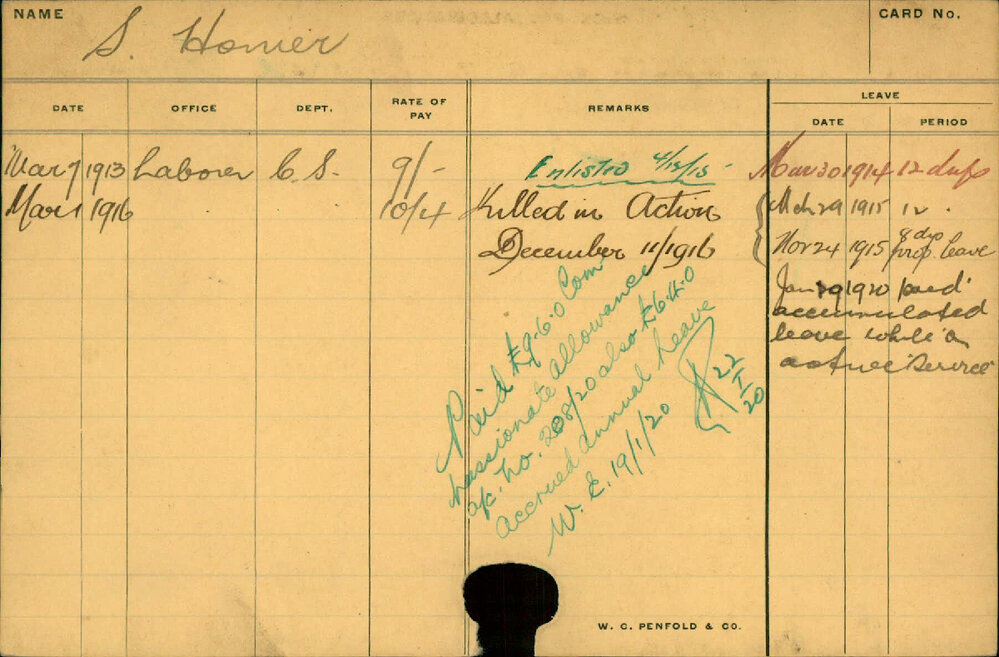 NAME
S. Homer
CARD No.
DATE
OFFICE
DEPT.
RATE OF PAY
REMARKS
LEAVE
DATE
PERIOD
Mar 7 1913 Laborer C.S. 9/-
Enlisted 4/12/15
Mar 30 1914 12 days
Mar 1 1916 10/4 Killed in Action
December 11/1916
Mch 29 1915 12 .
Nov 24 1915 8 dys prop. leave
Jan 19 1920 paid
accumulated
leave while on
active service
Paid £9.6.0 Com
passionate allowance
a/c. No. 208/20 also £6.4.0
accrued annual leave
W. E. 19/1/20
22/1/20
W. C. PENFOLD & CO.